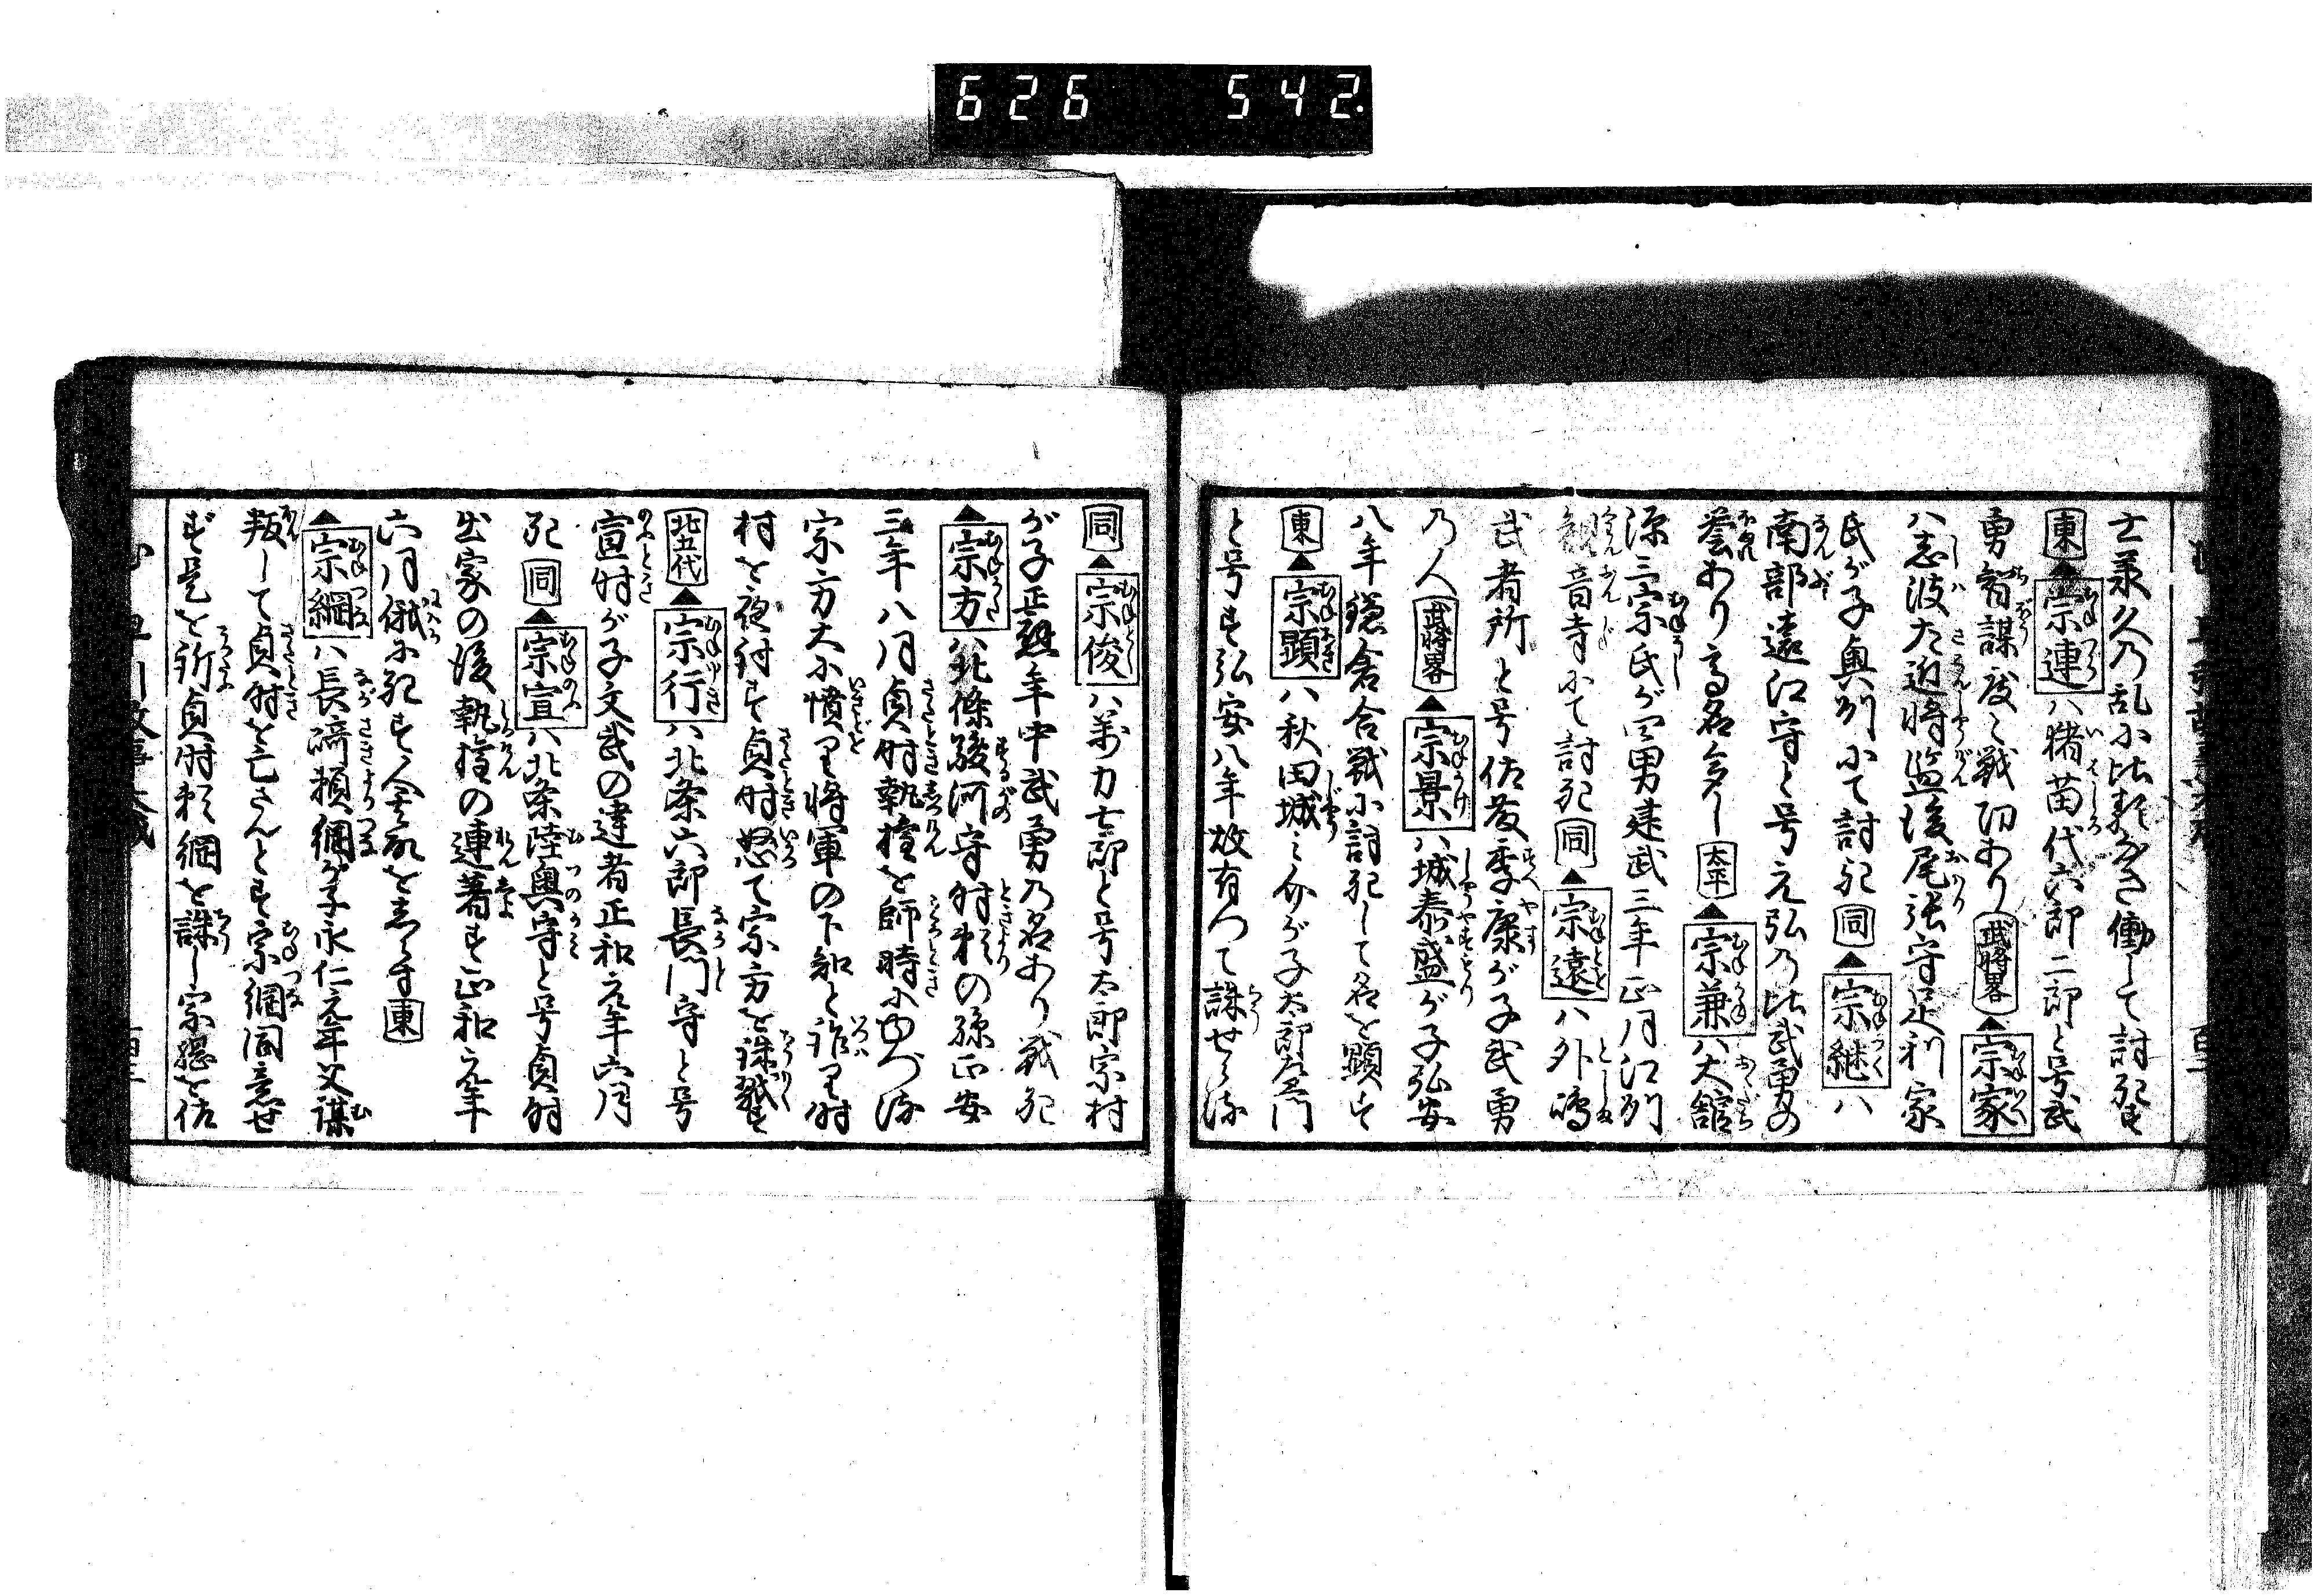 626 542.
士承久乃乱小比類なき働して討死す
東▲宗連ハ猪苗代六郎二郎と号武
勇智謀度々戦功あり武将畧▲宗家
ハ志波左近将監後尾張守足利家
氏が子奥州小て討死同▲宗継ハ
南部遠江守と号元弘乃比武勇の
誉あり高名多し太平▲宗兼ハ大舘
源三宗氏が四男建武三年正月江州
観音寺小て討死同▲宗遠ハ外嶋
武者所と号佐友季康が子武勇
乃人武将畧▲宗景ハ城泰盛が子弘安
八年鎌倉合戦小討死して名を顕す
東▲宗顕ハ秋田城之介が子太郎左衛門
と号す弘安八年故有つて誅せらる
同▲宗俊ハ万力七郎と号太郎宗村
が子正慶年中武勇乃名あり戦死
▲宗方ハ北條駿河守時頼の孫正安
三年八月貞時執権を師時小ゆづる
宗方大小憤り将軍の下知と詐り時
村を夜討す貞時怒て宗方を誅戮す
北五代▲宗行ハ北条六郎長門守と号
宣時が子文武の達者正和元年六月
死同▲宗宣ハ北条陸奥守と号貞時
出家の後執権の連署す正和元年
六月俄小死す人其故を志らず東
▲宗綱ハ長崎頼綱が子永仁元年父謀
叛して貞時を亡さんとす宗綱同意せ
ず是を訴貞時頼綱を誅し宗綱を佐